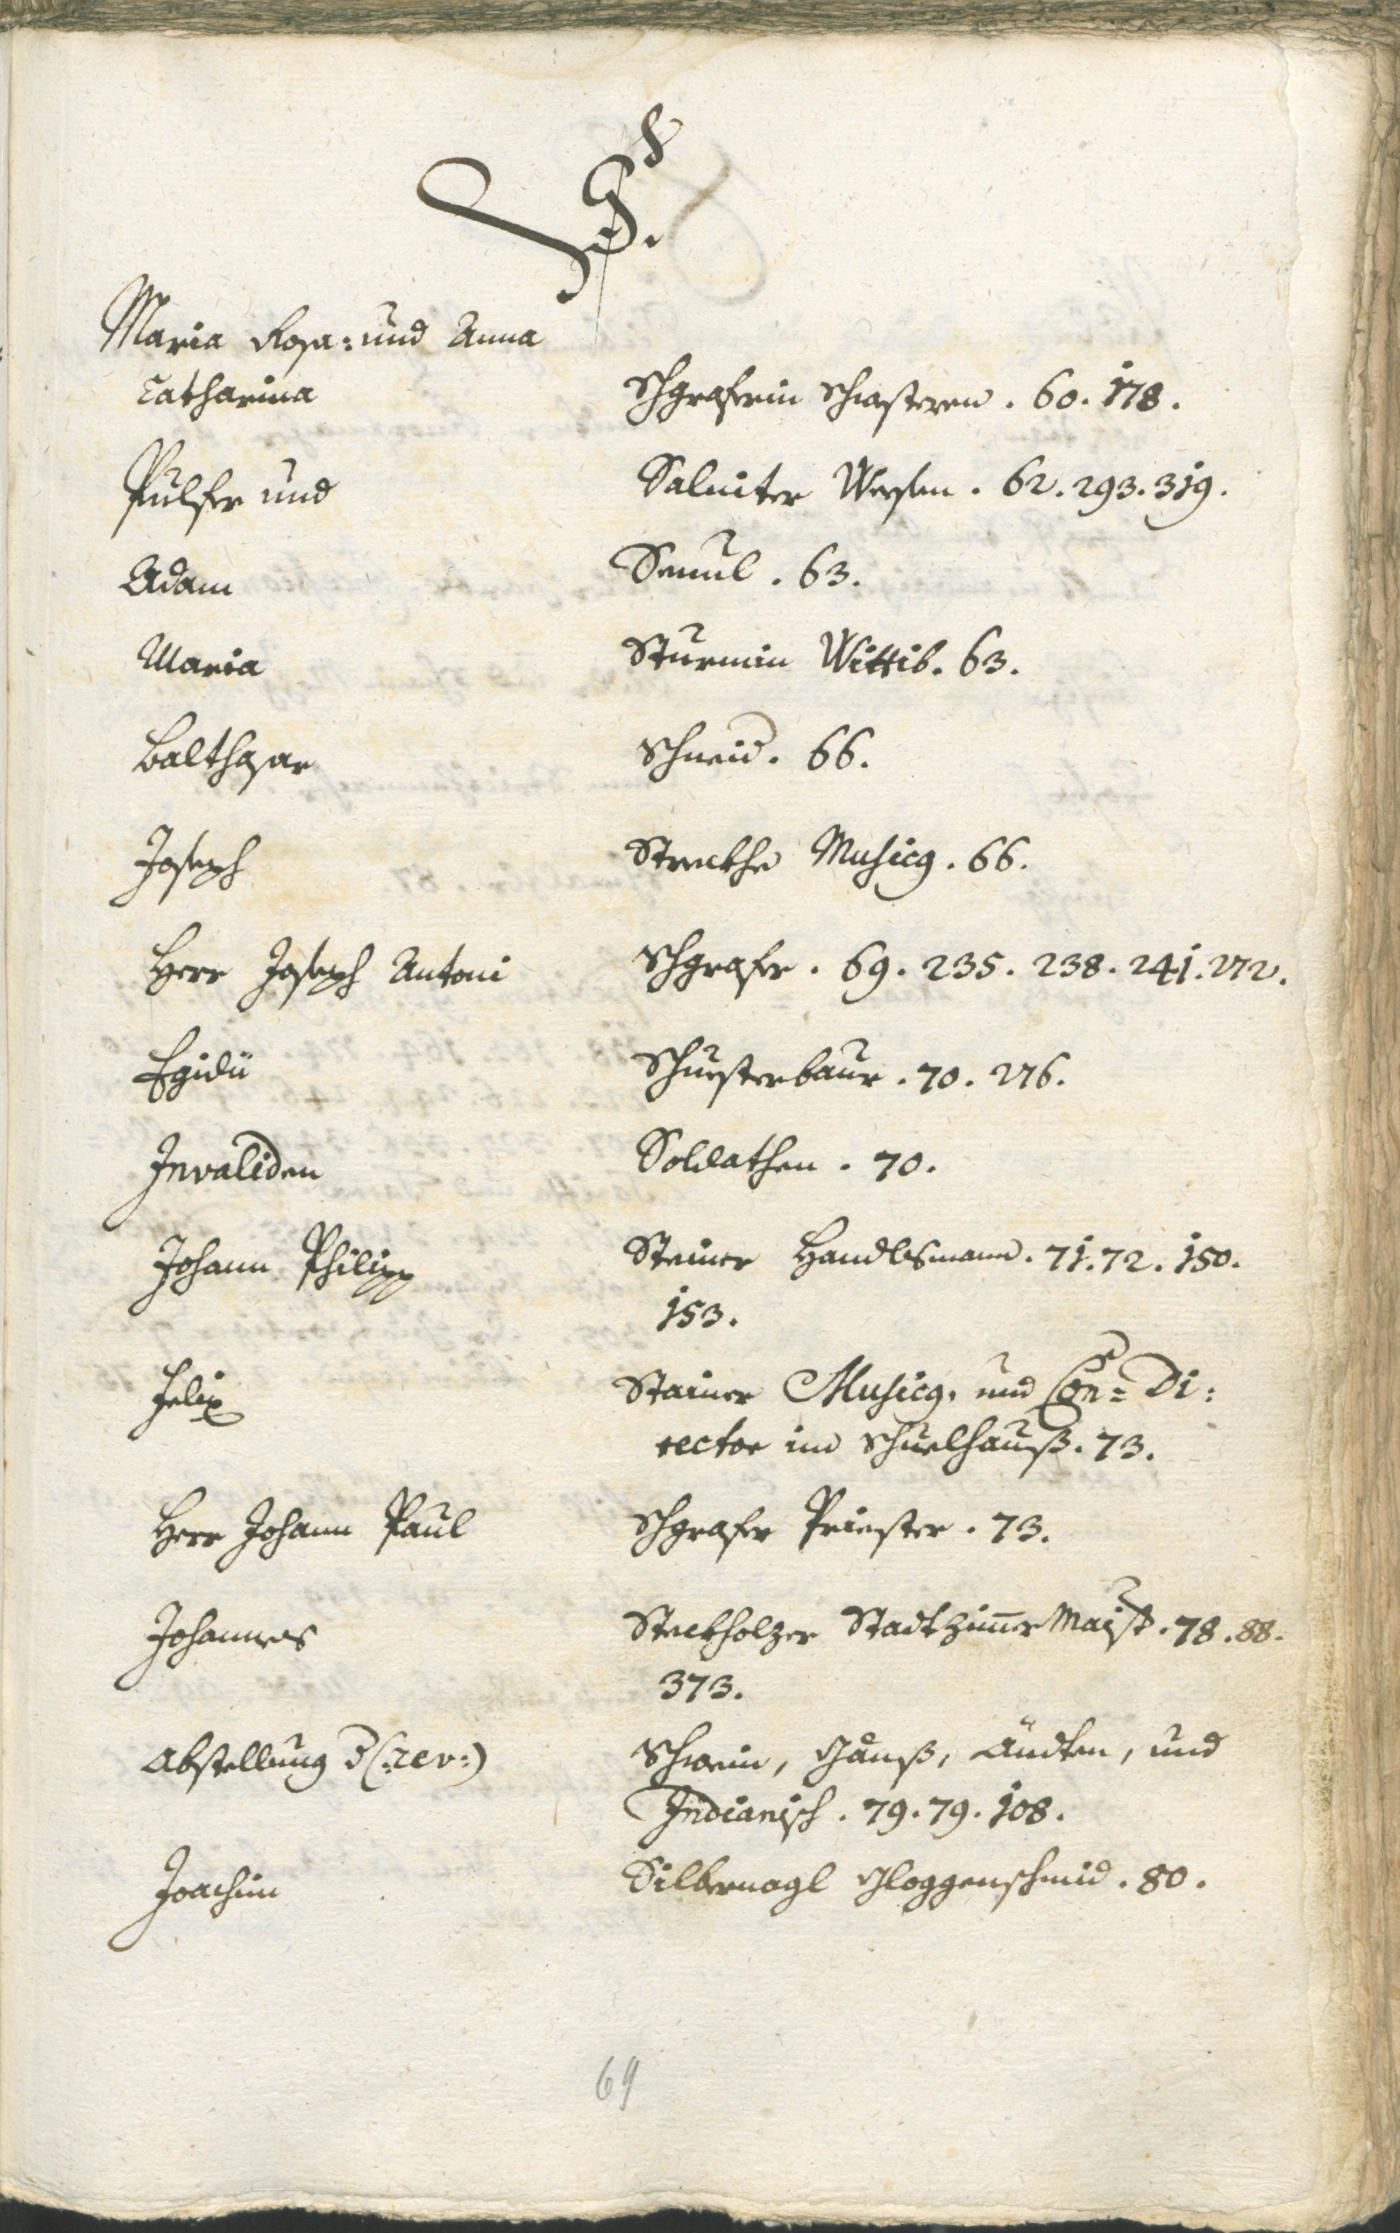 S.
Maria Rosa: und Anna
Catharina Schgraferin Schwesteren. 60. 178.
Pulfer und Salniter Wesen. 62. 293. 319.
Adam Semul. 63.
Maria Sturmin Wittib. 63.
Balthasar Schneid. 66.
Joseph Streckhe Musicg. 66.
Herr Joseph Antoni Schgrafer. 69. 235. 238. 241. 272.
Egidii Schuesterbaur. 70. 276.
Invaliden Soldathen. 70.
Johann Philipp Steiner Handlsmann. 71. 72. 150.
153.
Felix Stainer Musicg. und Con= Di:
rector im Schuelhauß. 73.
Herr Johann Paul Schgrafer Priester. 73.
Johannes Steckholzer Stadtzimer Maist. 78. 88.
373.
Abstellung d (:rev:) Schwein, Gänß, Ändten, und
Indianisch. 79. 79. 108.
Joachim Silbernagl Gloggenschmid. 80.
69